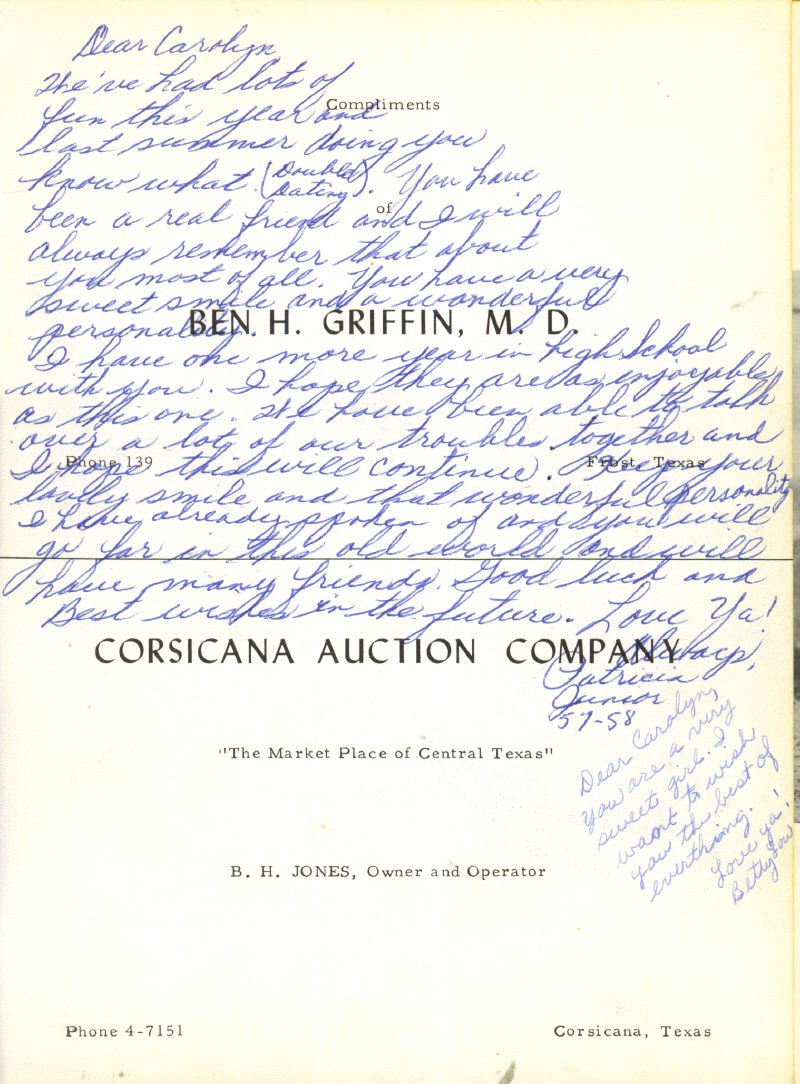 Dear Carolyn
We've had lots of
fun this year and
last summer doing you
know what (Double
Dating). You have
been a real friend and I will
always remember that about
you most of all. You have a very
sweet smile and a wonderful
personality.
I have one more year in high School
with you. I hope they are as enjoyable
as this one. We have been able to talk
over a lot of our troubles together and
I hope this will continue. Keep your
lovely smile and that wonderful personality
I have already spoken of and you will
go far in this old world and will
have many friends. Good luck and
Best wishes in the future. Love Ya!
Always,
Patricia
Junior
57-58
Compliments
of
BEN H. GRIFFIN, M. D.
Phone 139 Frost, Texas
CORSICANA AUCTION COMPANY
"The Market Place of Central Texas"
B. H. JONES, Owner and Operator
Phone 4-7151 Corsicana, Texas
Dear Carolyn,
You are a very
sweet girl. I
want to wish
you the best of
everthing.
Love ya!
Betty Lou